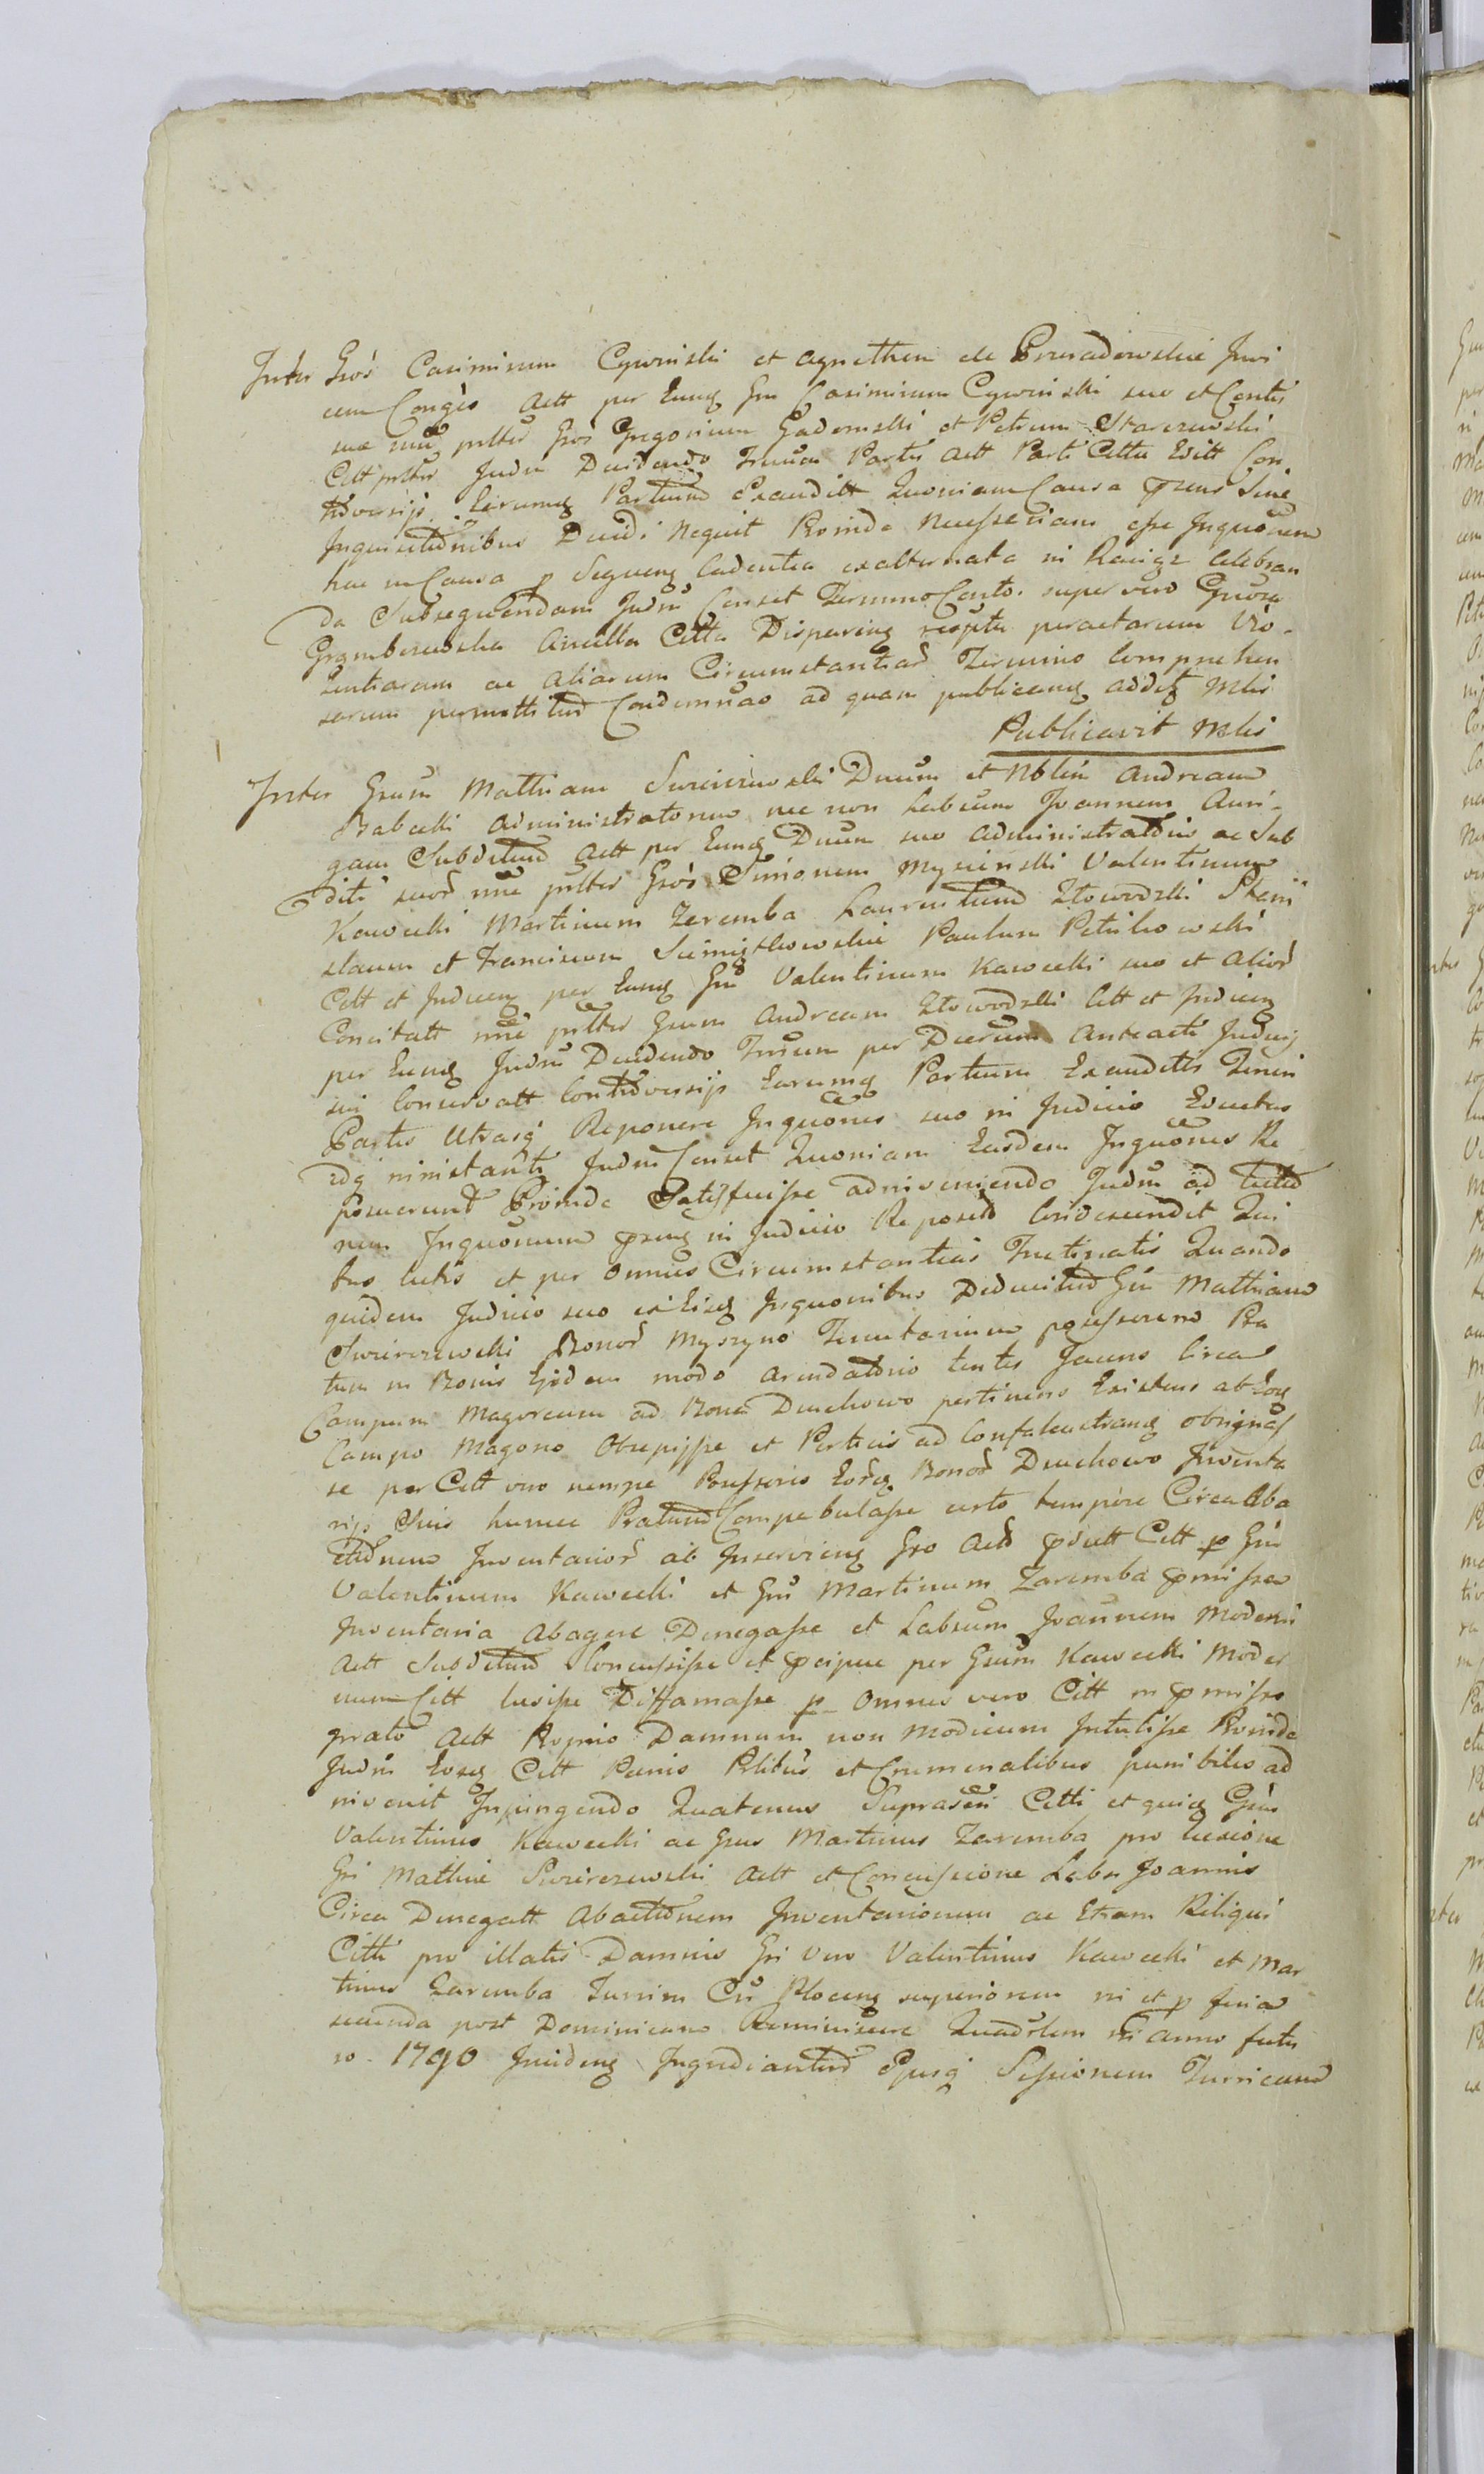 Inter Gsos Casimirum Cywinski et Agnethem de Przeradowskie Juri
cem Conges Actt per Eunq Gm Casimirum Cywinski suo et Contis
suæ nne prltes Gsos Gregorium Gadomski et Petrum Starczewski
Citt prltes Judm Dividendo Tmum Partis Actt Parti Citta Edidt Con
troversijs Earumq Partium Exauditt Quoniam Causa præns Sine
Inquisitionibus Decidi nequit Proinde necessariam esse Inquonem
hac in Causa p Sequenq Cadentia exalternata in Raciąz celebran
da Subsequendam Judm Censet Termino Conto. super vero Gnosa
Grąmbczewska Ancilla Citta Disparinq respectu peractarum Vio-
lentiarum ac Aliarum Circumstantiar Termino Comprehen
sarum permittitur Condemnao ad quam publicanq additq Mlis
Publicavit Mlis
Inter Gsum Mathiam Swierczewski Dnum et Nblem Andream
Babecki Administratorem nec non Labsum Joannem Auri-
gam Subditum Actt per Eunq Dnum suo Administratoris ac Sub
diti suor nne prltes Gsos Simonem Myscinski Valentinum
Kawecki Martinum Zaremba Laurentium Złowodzki Stani
slaum et Franciscum Sciemiętkowskie Paulum Petrikowski
Citt et Judicenq per Eunq Gm Valentinum Kawecki suo et Alior
Concitatt nne prltes Gsum Andream Złowodzki Citt et Judicenq
per Eunq Judm Dividendo Tmum per Decrum Anteacti Judicij
sui Conservatt Controversijs Earumq Partium Exauditis Tenen
Partes Utrasq Reponere Inquones suo in Judicio Eductas
idq ninstanti Judm Censet Quoniam Easdem Inquones Re
posuerunt Proinde Satisfecisse adniveniendo Judm ad Lectio
nem Inquonum prænq in Judicio Reposit Condescendit Qui
bus lectis et per omnes Circumstantias Trutinatis Quando
quidem Judicio suo ex Eisq Inquonibus Deducitur Gm Mathiam
Swierczewski Bonor Myszyno Tenutarium possessorem Pra
tum in Bonis Ejsdem modo arendatorio tentis Jacens Circa
Campum Magorcum ad Bona Duchowo pertinens Existens ab Eoq
Campo Magorno Obsepisse et Perticis ad Confalcutranq obsignas
se per Citt vero nempe Possessores Eorq Bonor Duchowo Inventa
rijs Suis hunce Pratum Compebulasse certo tempore Circa Aba
ctionem Inventarior ab Inservienq Gso Actt præfatt Citt p Gm
Valentinum Kawecki et Gm Martinum Zaremba præmissa
Inventaria Abagere Denegasse et Labsum Joannem Moderni
Actt Subditum Concussisse et præcipue per Gsum Kawecki Moder
num Citt Lusisse Diffamasse p omnes vero Citt in præmisso
prato Actt Proprio Damnum non modicum Intulisse Proinde
Judm Eosq Citt Pænis Plibus et Crumenalibus punibiles ad
nivenit Inpingendo Quatenus Suprascri Citti et quiq Gsus
Valentinus Kawecki ac Gsus Martinus Zaremba pro læsione
Gsi Mathiæ Swierczewski Actt et Concussione Labsi Joannis
Circa Denegatt Abactionem Inventariorum ac Etiam Reliqui
Citti pro illatis Damnis Gsi vero Valentinus Kawecki et Mar
tinus Zaremba Turrim Cis Plocenq superiorem ni et p feria
secunda post Dominicam Reminiscere Quadrlem in anno futu
ro. 1790 Incidenq Ingrediantur Ejusq Sessionem Turricam